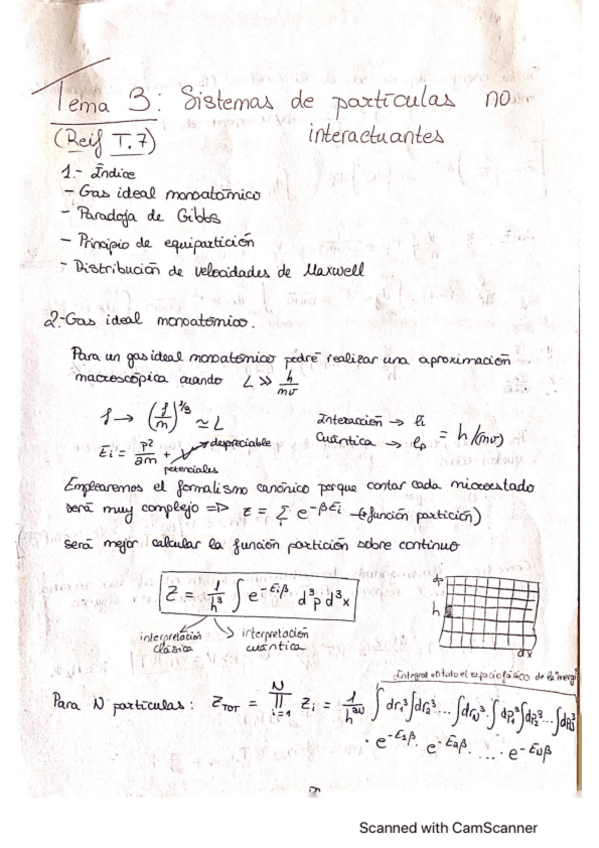 Tema 3: Sistemas de partículas no interactuantes
(Reif T.7)
1.- Índice
- Gas ideal monoatómico
- Paradoja de Gibbs
- Principio de equipartición
- Distribución de velocidades de Maxwell
2.- Gas ideal monoatómico.
Para un gas ideal monoatómico podré realizar una aproximación
macroscópica cuando L >> h/mv
f → (f/m)^1/3 ≃ L
Interacción → li
Cuántica → lp = h/(mv)
Ei = p²/2m + V → depreciable
potenciales
Emplearemos el formalismo canónico porque contar cada microestado
será muy complejo ⇒ z = Σ e^-βEi → (función partición)
i
será mejor calcular la función partición sobre continuo
Z = 1/h³ ∫ e^-Eiβ d³p d³x
interpretación clásica
interpretación cuántica
dp
h
dx
Integral en todo el espacio fásico de la energí
Para N partículas: Z_TOT = ∏_{i=1}^N Zi = 1/h^3N ∫dr1³∫dr2³...∫drN³·∫dp1³∫dp2³...∫dpN³
· e^-E1β · e^-E2β · ... · e^-ENβ
Scanned with CamScanner